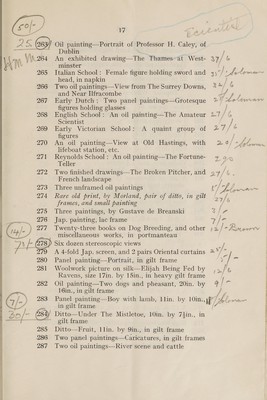 50/-
Scientist
17
25
263 Oil painting—Portrait of Professor H. Caley, of
Dublin
264 An exhibited drawing—The Thames at West-
minster 37/6
265 Italian School: Female figure holding sword and
head, in napkin
266 Two oil paintings—View from The Surrey Downs,
and Near Ilfracombe
267 Early Dutch: Two panel paintings—Grotesque
figures holding glasses
268 English School: An oil painting—The Amateur
Scientist 27/6
269 Early Victorian School: A quaint group of
figures 27/6
270 An oil painting—View at Old Hastings, with
lifeboat station, etc.
271 Reynolds School: An oil painting—The Fortune-
Teller
272 Two finished drawings—The Broken Pitcher, and
French landscape 27/6
273 Three unframed oil paintings
274 Rare old print, by Morland, pair of ditto, in gilt
frames, and small painting 27/6
275 Three paintings, by Gustave de Breanski
276 Jap. painting, lac frame 7/-
277 Twenty-three books on Dog Breeding, and other
miscellaneous works, in portmanteau
14/-
278 Six dozen stereoscopic views
279 A 4-fold Jap. screen, and 2 pairs Oriental curtains 25/-
280 Panel painting—Portrait, in gilt frame
281 Woolwork picture on silk—Elijah Being Fed by
Ravens, size 17in. by 15in., in heavy gilt frame
282 Oil painting—Two dogs and pheasant, 20in. by
16in., in gilt frame
283 Panel painting—Boy with lamb, 11in. by 10in.,
in gilt frame
7/-
30/-
284 Ditto—Under The Mistletoe, 10in. by 7½in., in
gilt frame
285 Ditto—Fruit, 11in. by 9in., in gilt frame
286 Two panel paintings—Caricatures, in gilt frames
287 Two oil paintings—River scene and cattle